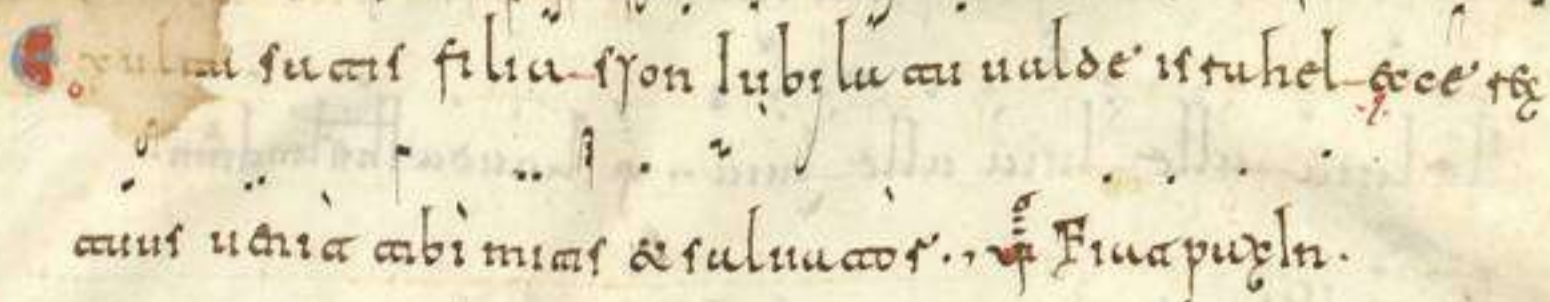 Exulta satis filia syon Iubila tu ualde israhel ecce rex
tuus ueniet tibi mitis & saluator .., VR Fiat pax In.